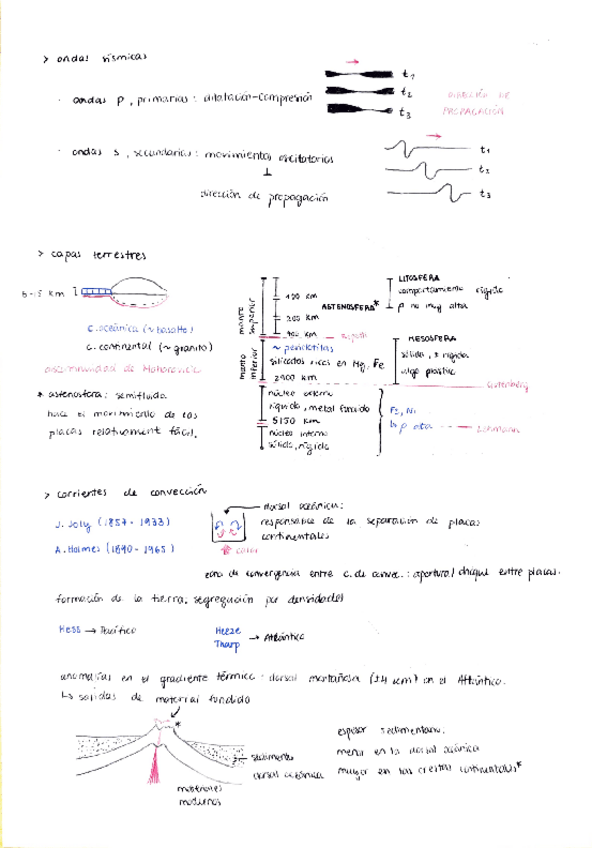 > ondas sísmicas
t1
· ondas P, primarias: dilatación-compresión
t2
DIRECCIÓN DE
PROPAGACIÓN
t3
· ondas s, secundarias: movimientos oscilatorios
t1
⊥
t2
dirección de propagación
t3
> capas terrestres
LITOSFERA
comportamiento rígido
ρ no muy alta
km
100 km
ASTENOSFERA*
200 km
km
manto superior
c. oceánica (~basalto)
c. continental (~granito)
discontinuidad de Mohorovicic
MESOSFERA
sólida, ± rígida
algo plástica
manto inferior
~ peridotitas
silicatos ricos en Mg, Fe
2900 km
Gutenberg
* astenosfera: semifluida
hace el movimiento de las
placas relativamente fácil.
núcleo externo
líquido, metal fundido
5150 km
núcleo interno
sólido, rígido
Fe, Ni
ρ alta
Lehmann
> corrientes de convección
dorsal oceánica:
responsable de la separación de placas
continentales
J. Joly (1857 - 1933)
A. Holmes (1890 - 1965)
calor
zona de convergencia entre c. de convec.: apertura/choque entre placas.
formación de la tierra: segregación por densidades
Hess → Pacífico
Heeze
Tharp → Atlántico
anomalías en el gradiente térmico: dorsal montañosa (±4 km) en el Atlántico.
↳ salidas de material fundido
*
espesor sedimentario:
menor en la dorsal oceánica
mayor en las crestas continentales*
sedimentos
dorsal oceánica
materiales
modernos